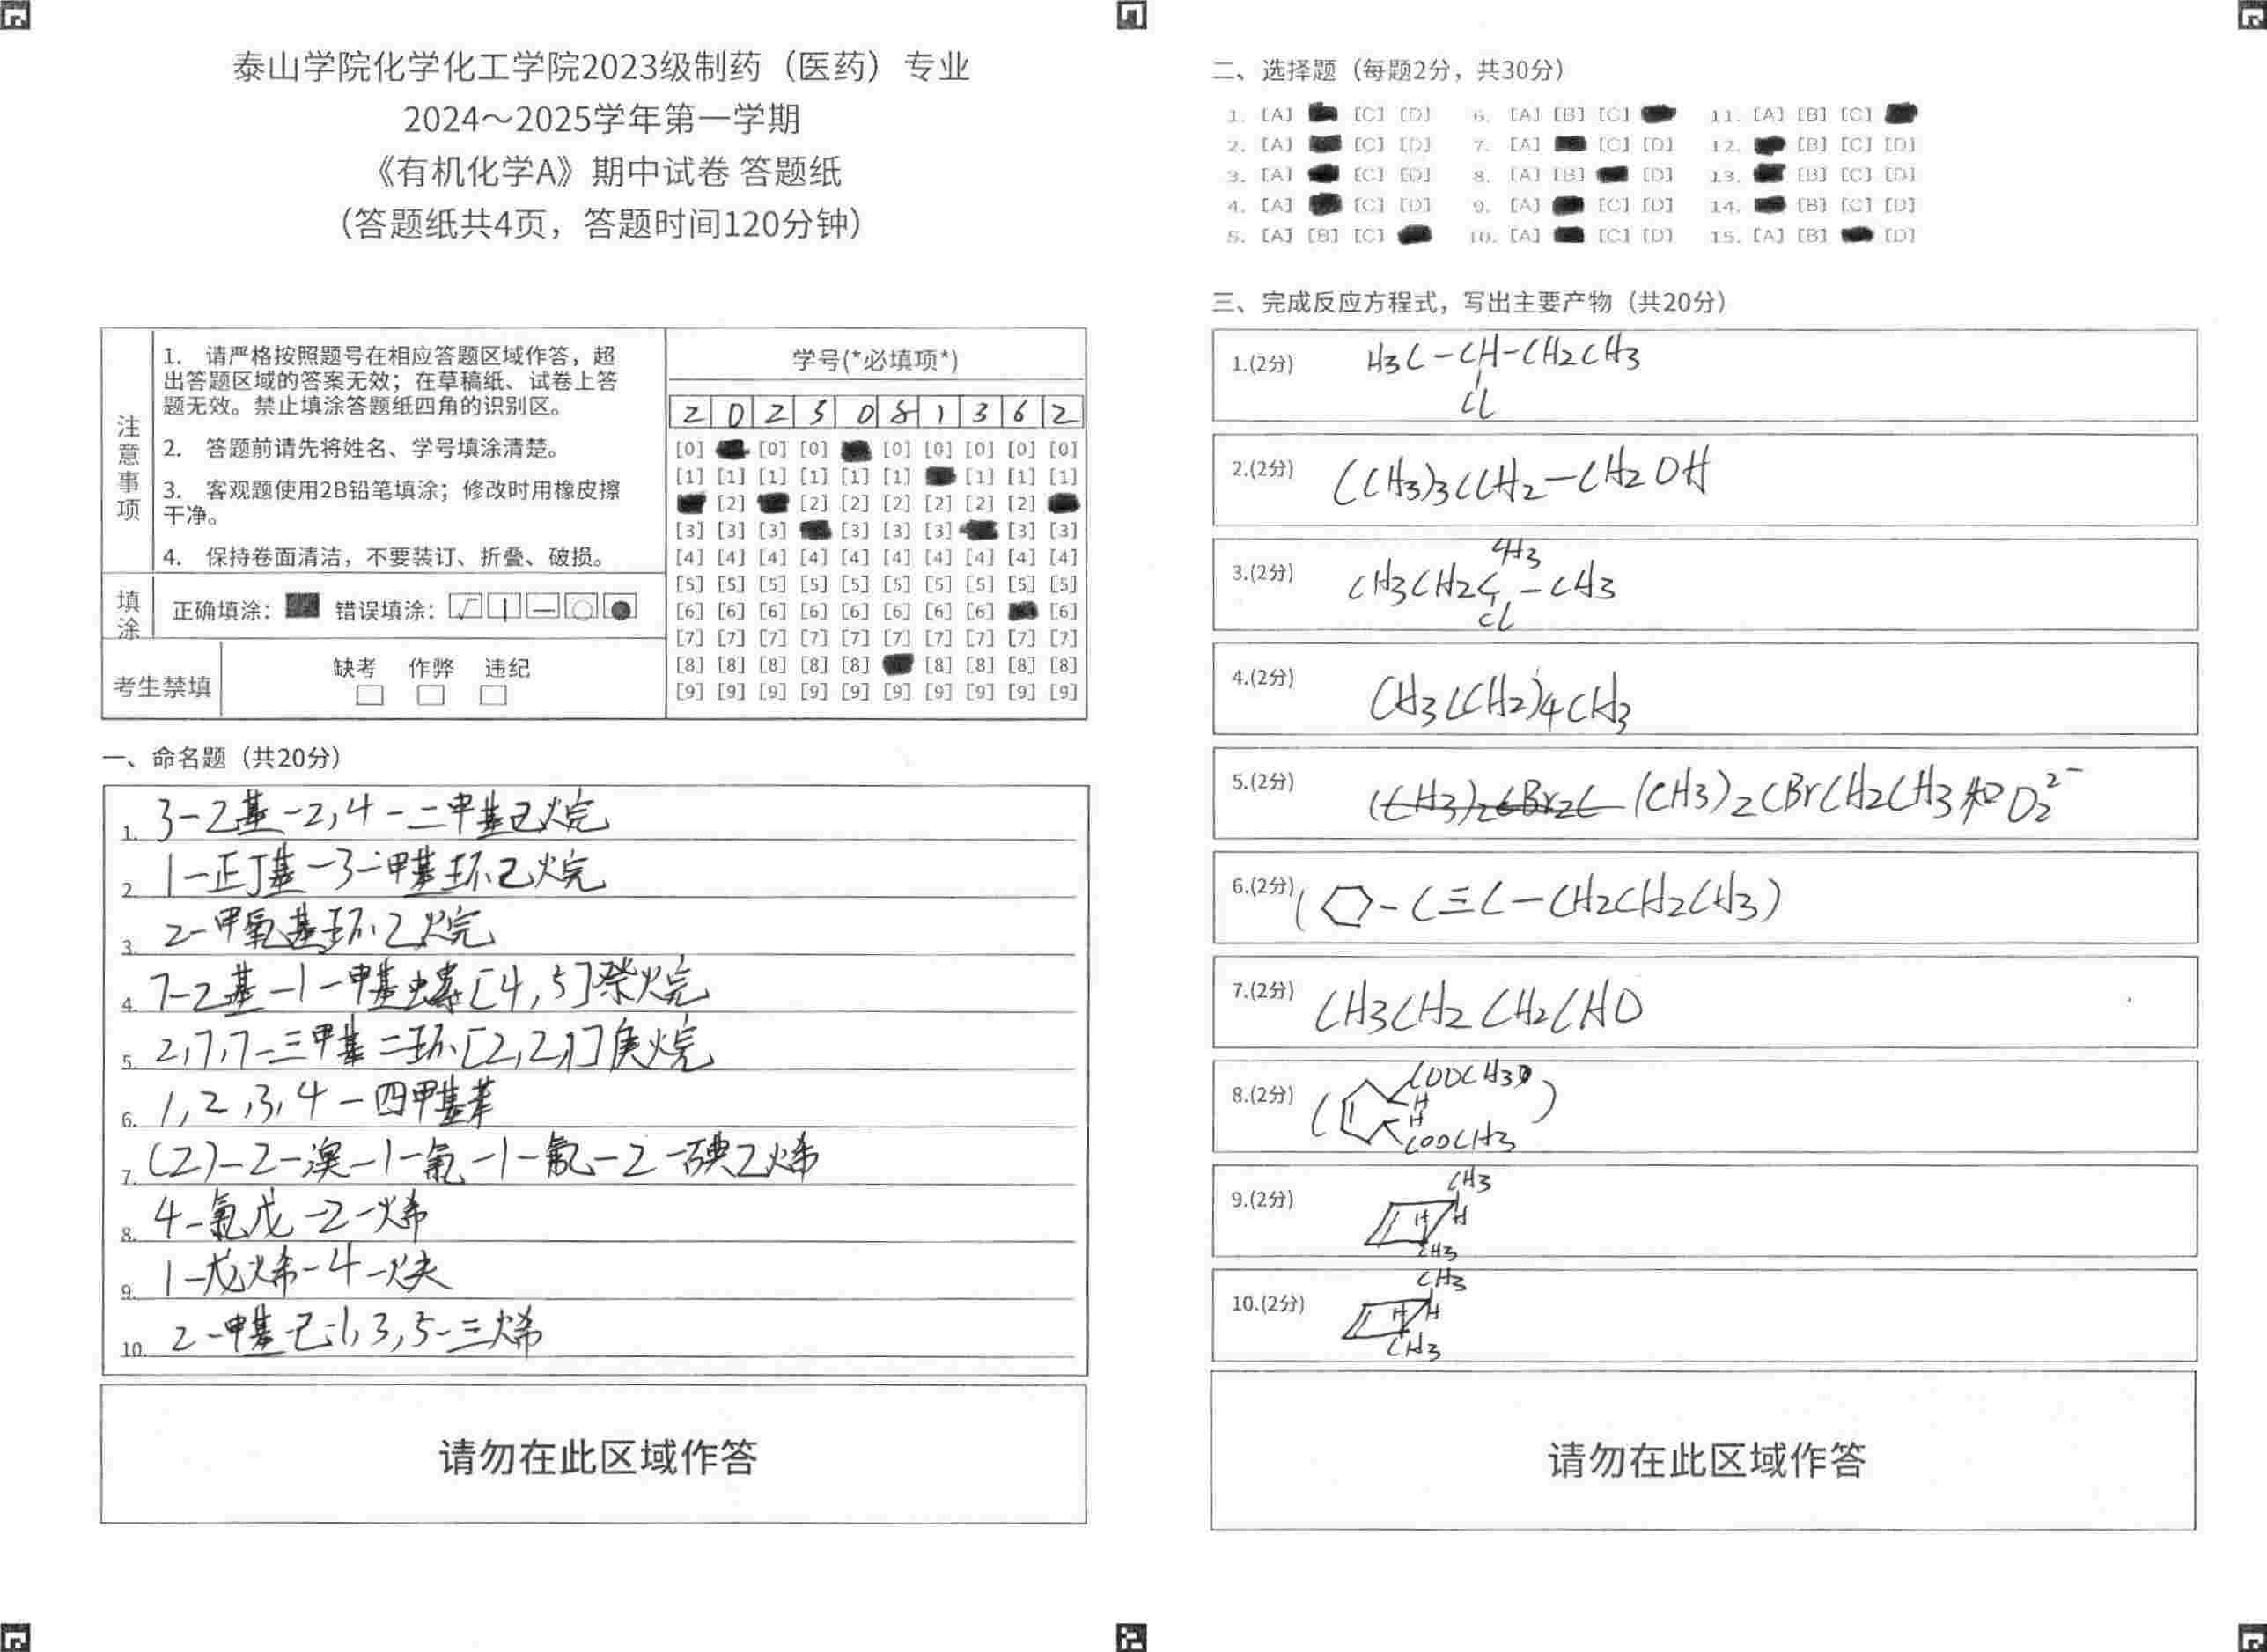 泰山学院化学化工学院2023级制药（医药）专业
2024～2025学年第一学期
《有机化学A》期中试卷 答题纸
（答题纸共4页，答题时间120分钟）
注意事项
1. 请严格按照题号在相应答题区域作答，超
出答题区域的答案无效；在草稿纸、试卷上答
题无效。禁止填涂答题纸四角的识别区。
2. 答题前请先将姓名、学号填涂清楚。
3. 客观题使用2B铅笔填涂；修改时用橡皮擦
干净。
4. 保持卷面清洁，不要装订、折叠、破损。
填涂
正确填涂： 错误填涂：
考生禁填
缺考 作弊 违纪
学号(*必填项*)
2 0 2 3 0 8 1 3 6 2
[0] [0] [0] [0] [0] [0] [0] [0]
[1] [1] [1] [1] [1] [1] [1] [1] [1]
[2] [2] [2] [2] [2] [2] [2]
[3] [3] [3] [3] [3] [3] [3] [3]
[4] [4] [4] [4] [4] [4] [4] [4] [4] [4]
[5] [5] [5] [5] [5] [5] [5] [5] [5] [5]
[6] [6] [6] [6] [6] [6] [6] [6] [6]
[7] [7] [7] [7] [7] [7] [7] [7] [7] [7]
[8] [8] [8] [8] [8] [8] [8] [8] [8]
[9] [9] [9] [9] [9] [9] [9] [9] [9] [9]
一、命名题（共20分）
1. 3-乙基-2,4-二甲基己烷
2. 1-正丁基-3-甲基环己烷
3. 2-甲氧基环乙烷
4. 7-乙基-1-甲基螺[4,5]癸烷
5. 2,7,7-三甲基二环[2,2,1]庚烷
6. 1,2,3,4-四甲基苯
7. (Z)-2-溴-1-氯-1-氟-2-碘乙烯
8. 4-氯戊-2-烯
9. 1-戊烯-4-炔
10. 2-甲基-己-1,3,5-三烯
请勿在此区域作答
二、选择题（每题2分，共30分）
1. [A] [C] [D] 6. [A] [B] [C] 11. [A] [B] [C]
2. [A] [C] [D] 7. [A] [C] [D] 12. [B] [C] [D]
3. [A] [C] [D] 8. [A] [B] [D] 13. [B] [C] [D]
4. [A] [C] [D] 9. [A] [C] [D] 14. [B] [C] [D]
5. [A] [B] [C] 10. [A] [C] [D] 15. [A] [B] [D]
三、完成反应方程式，写出主要产物（共20分）
1.(2分) H3C-CH-CH2CH3
Cl
2.(2分) (CH3)3CCH2-CH2OH
CH3
3.(2分) CH3CH2C-CH3
Cl
4.(2分) CH3(CH2)4CH3
5.(2分) (CH3)2CBr2C (CH3)2CBrCH2CH3和O2²⁻
6.(2分) ( -C≡C-CH2CH2CH3)
7.(2分) CH3CH2CH2CHO
COOCH3
8.(2分) ( H )
H
COOCH3
CH3
9.(2分) H H
CH3
CH3
10.(2分) H H
CH3
请勿在此区域作答